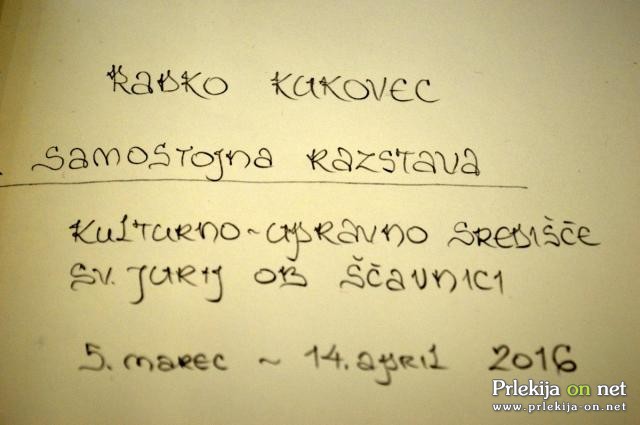 RADKO KUKOVEC
SAMOSTOJNA RAZSTAVA
KULTURNO-UPRAVNO SREDIŠČE
SV. JURIJ OB ŠČAVNICI
5. marec - 14. april 2016
Prlekija on net
www.prlekija-on.net